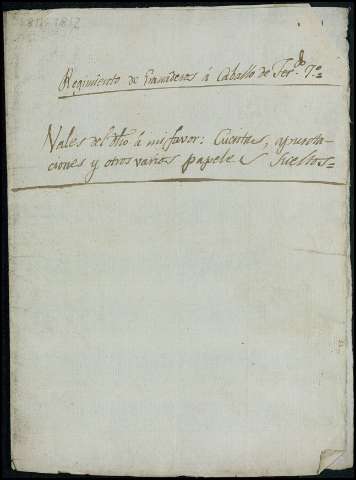 1811-1812
Regimiento de Granaderos á Caballo de Fer.do 7.o=
Vales del dho á mi favor: Cuentas, apunta-
ciones y otros varios papeles sueltos=